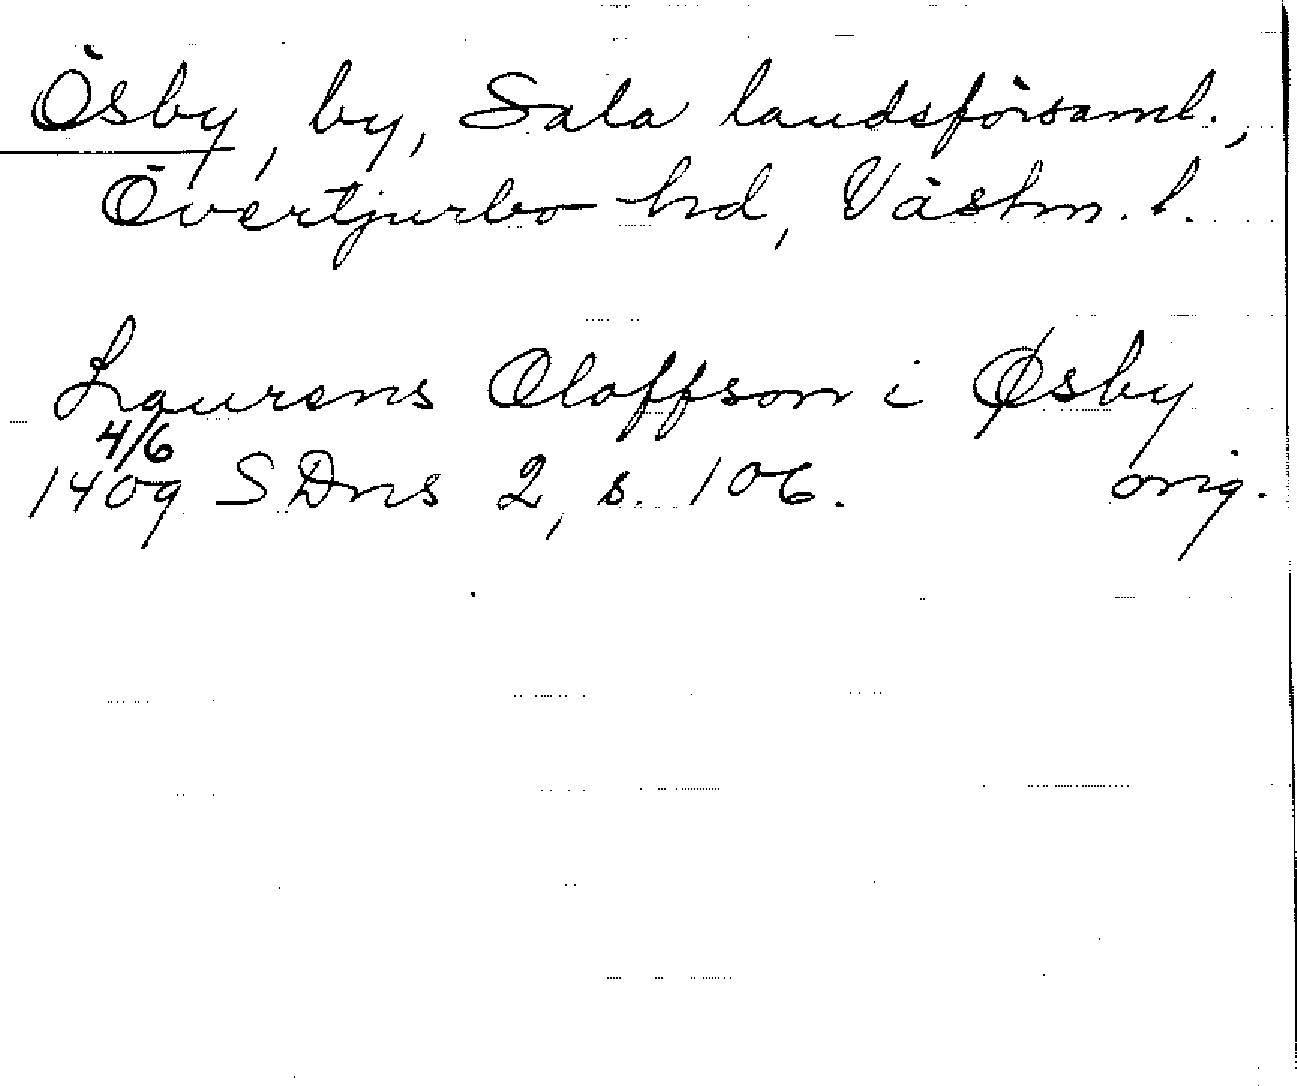 Ösby, by, Sala landsförsaml.,
Övertjurbo hd, Västm. l.
Laurens Oloffson i Øsby
4/6
1409 SDns 2, s. 106. orig.